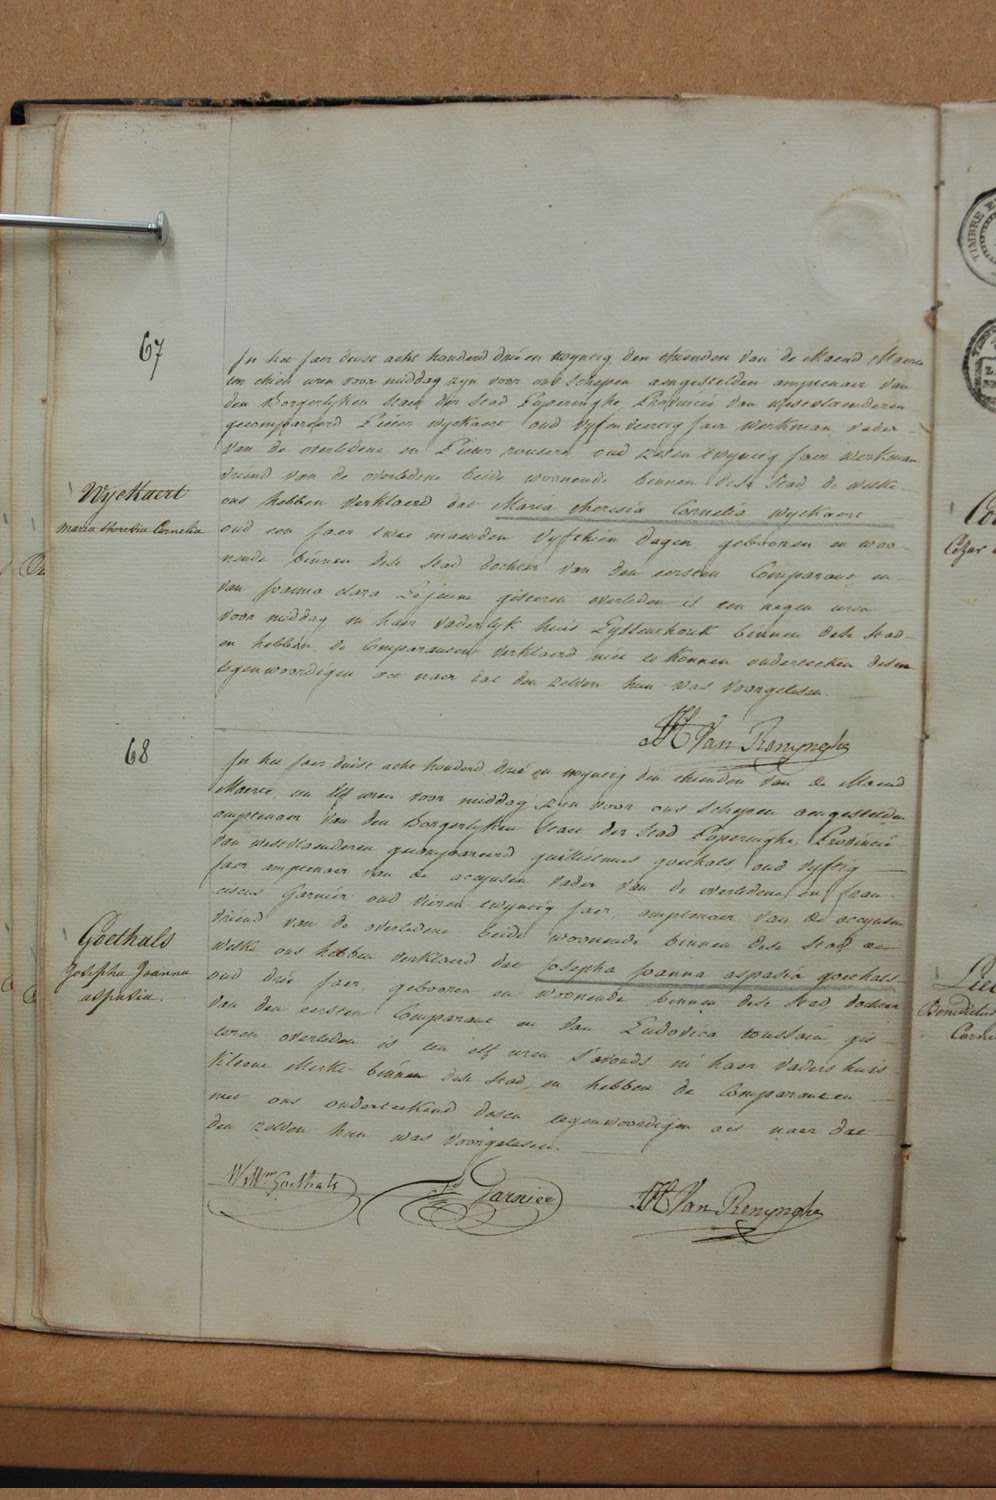 67
In het jaer duist acht honderd drie en twyntig den thienden van de Maend Maerte
ten thien uren voor middag zyn voor ons schepen aengestelden amptenaer van
den Borgerlyken staet der stad Poperinghe, Provincie van westvlaenderen
gecompareerd Pieter wyckaert oud vyf en veertig jaer werkman vader
van de overledene en Pieter oud zeven twyntig jaer werkman
vriend van de overledene beide woonende binnen dese stad de welke
ons hebben verklaerd dat Maria theresia Cornelia wyckaert
Wyckaert
maria theresia Cornelia
oud een jaer twee maenden vyfthien dagen, gebooren en woo-
nende binnen dese stad dochter van den eersten Comparant en
van joanna clara Lejeune gisteren overleden is ten negen uren
voor middag in haer vaderlyk huis binnen dese stad
en hebben de Comparanten verklaerd niet te konnen onderteeken desen
tegenwoordigen act naer dat den zelven hun was voorgelesen.
Van Renynghe
68
In het jaer duist acht honderd drie en twyntig den thienden van de Maend
Maerte, ten elf uren voor middag zyn voor ons schepen aengestelden
amptenaer van den Borgerlyken staet der stad Poperinghe, Provincie
van westvlaenderen gecompareerd guillielmus goethals oud vyftig
jaer amptenaer van de accynsen vader van de overledene en fran-
ciscus Garnier oud vieren twyntig jaer, amptenaer van de accynsen
vriend van de overledene beide woonende binnen dese stad de
welke ons hebben verklaerd dat josepha joanna aspasia goethals
Goethals
Josepha Joanna
aspasia.
oud drie jaer, gebooren en woonende binnen dese stad, dochter
van den eersten Comparant en van Ludovica toussein gis-
teren overleden is ten elf uren s'avonds in haer vaders huis
kleene Merkt binnen dese stad, en hebben de Comparanten
met ons onderteekend desen tegenwoordigen act naer dat
den zelven hun was voorgelesen.
Goethals
Garnier
Van Renynghe
TIMBRE